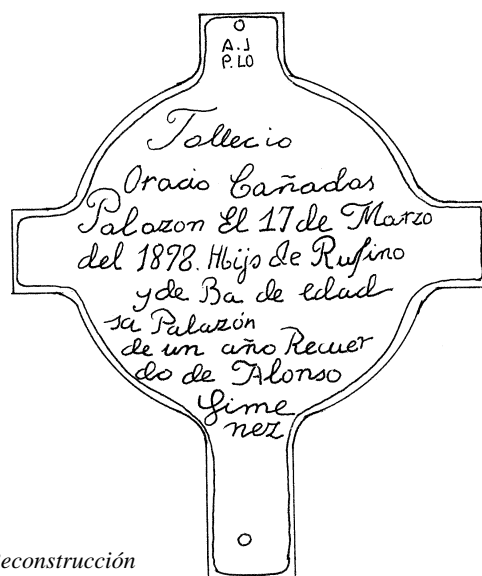 A.J
P.LO
Tallecio
Oracio Cañadas
Palazon El 17 de Marzo
del 1898. Hbijs de Rufino
y de Ba de edad
sa Palazón
de un año Recuer
do de Alonso
Gime
nez
econstrucción